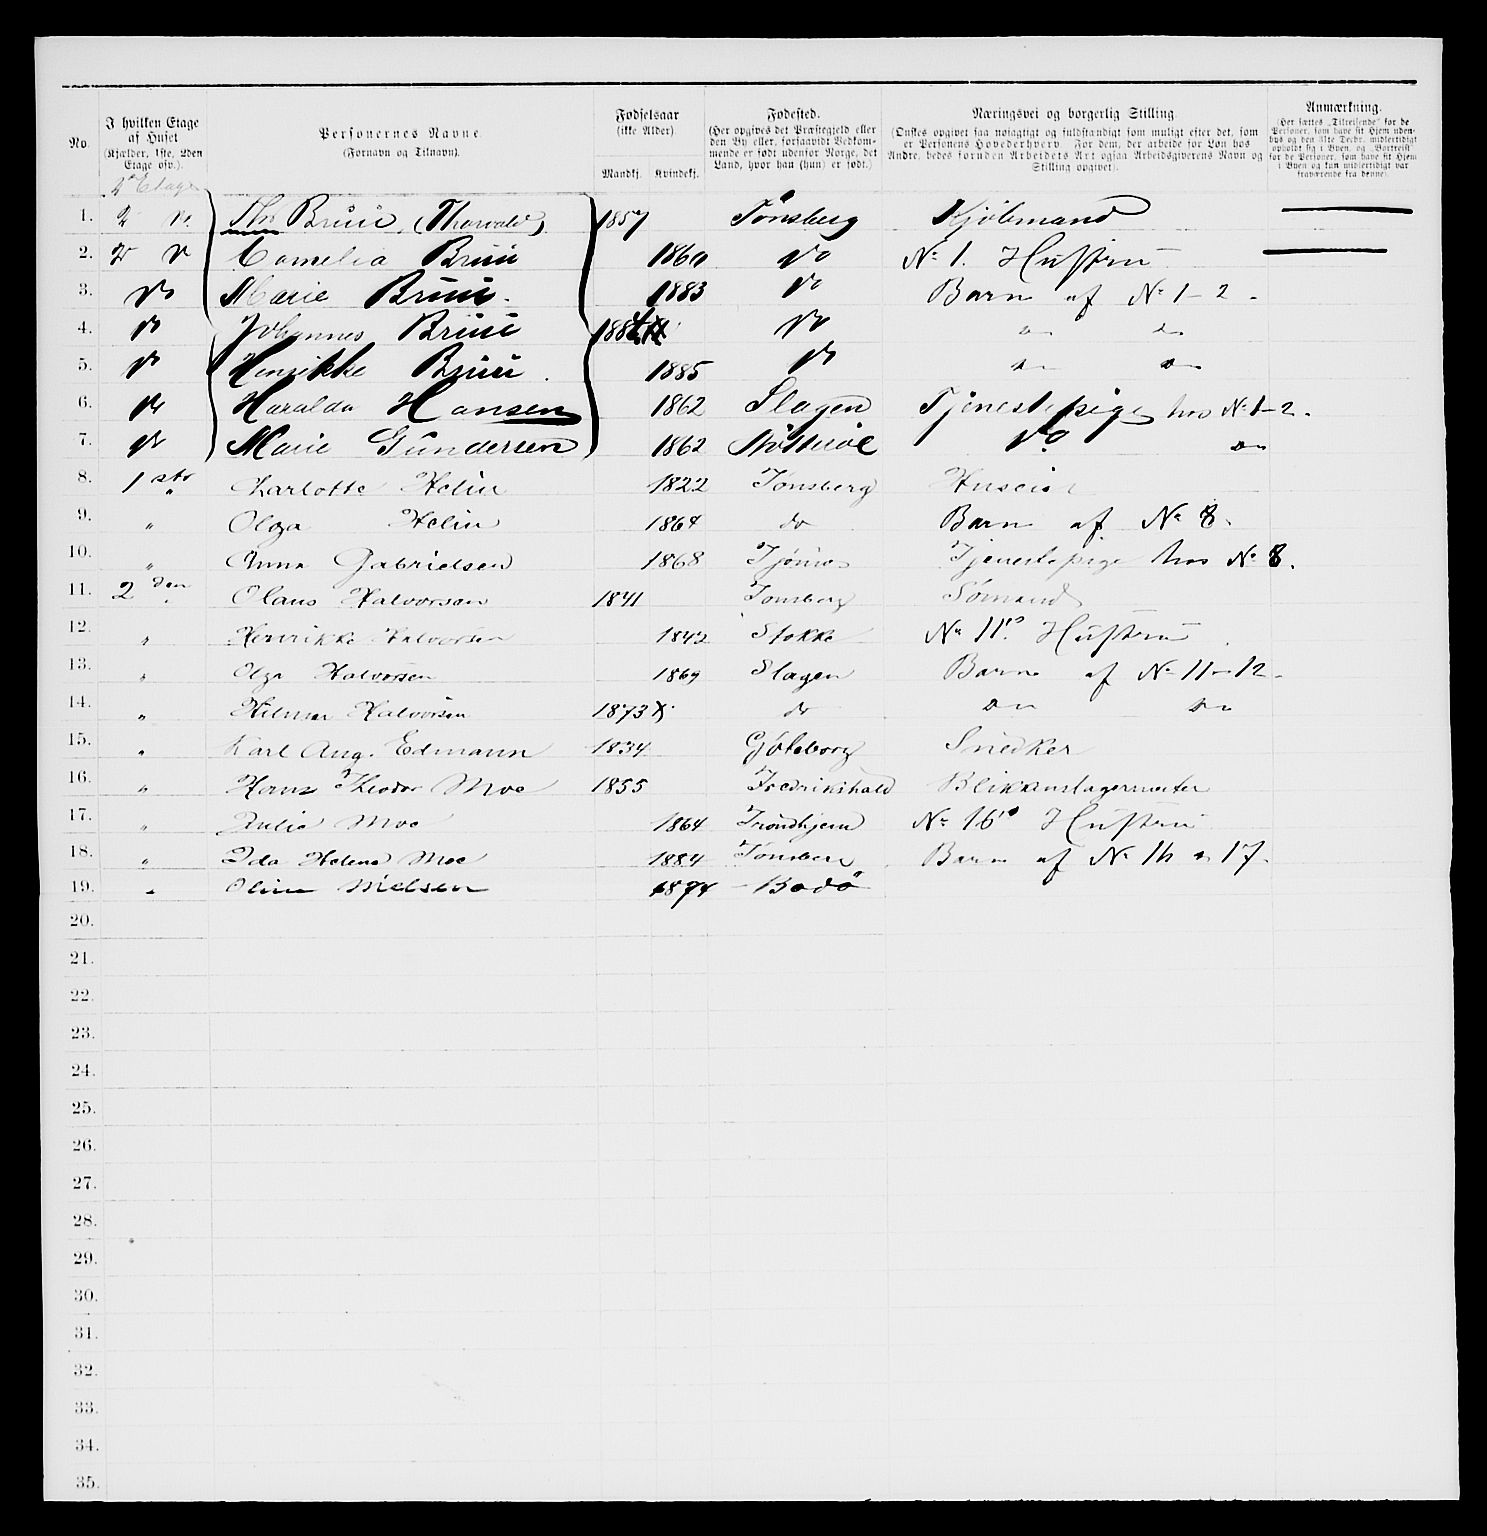 No. I hvilken Etage af Huset (Kjælder, 1ste, 2den Etage osv.). Personernes Navne (Fornavn og Tilnavn). Fødselsaar (ikke Alder) Mandkj. Kvindekj. Fødested. (Her opgives det Præstegjeld eller den By eller, forsaavidt Vedkommende er født udenfor Norge, det Land, hvor han (hun) er født.) Næringsvei og borgerlig Stilling. (Ønskes opgivet saa nøiagtigt og fuldstændigt som muligt efter det, som er Personens Hovederhverv. For dem, der arbeide for Løn hos Andre, bedes foruden Arbeidets Art ogsaa Arbeidsgiverens Navn og Stilling opgivet). Anmærkning. (Her sættes „Tilreisende" for de Personer, som have sit Hjem udenbys og den 31te Decbr. midlertidigt opholdt sig i Byen, og „Bortreist" for de Personer, som have sit Hjem i Byen og kun midlertidigt var fraværende fra denne).
2 Etage
1. 2 do. Th. Bruu, (Thorvald) 1857 Tønsberg Kjøbmand
2. 2 do Camelia Bruu 1860 do No 1. Hustru
3. do Marie Bruu. 1883 do Barn af No 1-2.
4. do Johannes Bruu 1884 do do do
5. do Henrikke Bruu. 1885 do do do
6. do Haralda Hansen 1862 Slagen Tjenestepige hos No 1-2.
7. do Marie Gundersen 1862 Nøtterøe do do
8. 1ste Charlotte Helin 1822 Tønsberg Huseier
9. " Olga Helin 1864 do Barn af No 8.
10. " Anna Gabrielsen 1868 Tjømø Tjenestepige hos No 8.
11. 2den Olaus Halvorsen 1841 Tønsberg Sømand
12. " Henrikke Halvorsen 1842 Stokke No 11's Hustru
13. " Olga Halvorsen 1869 Slagen Barn af No 11-12.
14. " Hilmar Halvorsen 1873 do do do
15. " Karl Aug. Edmann 1834 Gøteborg Snedker
16. " Hans Theodor Moe 1855 Fredrikshald Blikkenslagermester
17. " Julie Moe 1864 Trondhjem No 16's Hustru
18. " Ida Helene Moe 1884 Tønsberg Barn af No 16 & 17.
19. " Oline Nielsen 1874 Bodø
20.
21.
22.
23.
24.
25.
26.
27.
28.
29.
30.
31.
32.
33.
34.
35.